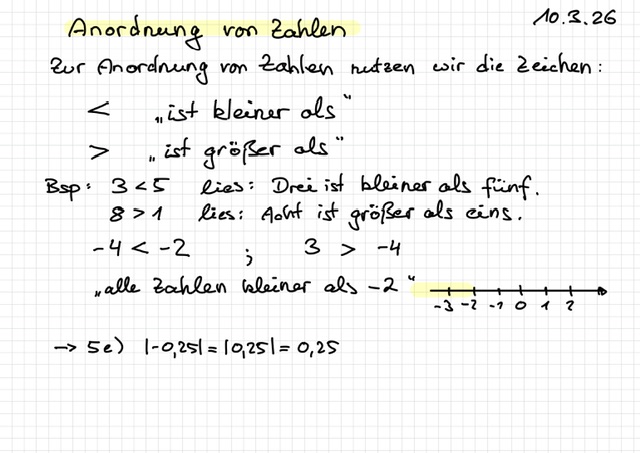 Anordnung von Zahlen 10.3.26
Zur Anordnung von Zahlen nutzen wir die Zeichen:
< „ist kleiner als“
> „ist größer als“
Bsp: 3 < 5 lies: Drei ist kleiner als fünf.
8 > 1 lies: Acht ist größer als eins.
-4 < -2 ; 3 > -4
„alle Zahlen kleiner als -2“
-3 -2 -1 0 1 2
→ 5e) |-0,25| = |0,25| = 0,25